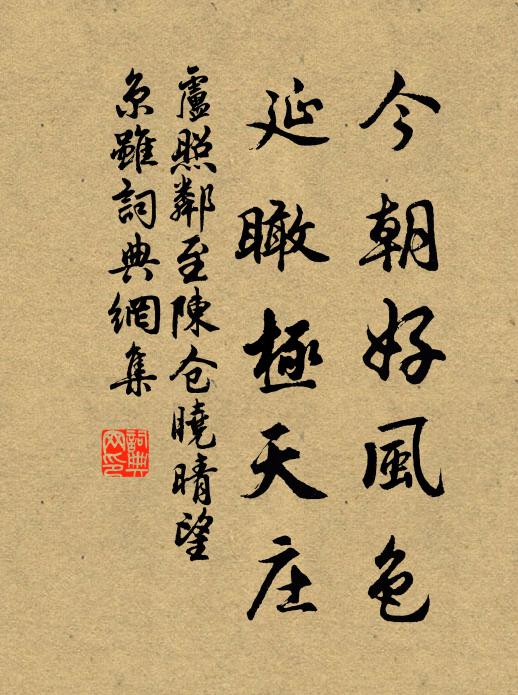 今朝好風色
延瞰極天庄
盧照鄰至陳仓曉晴望
京雖詞典網集
詞典
网印